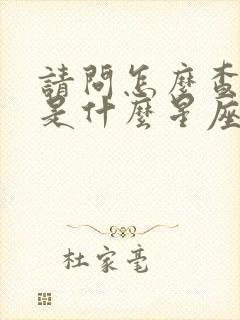 請問怎麼查
是什麼星座
杜家毫